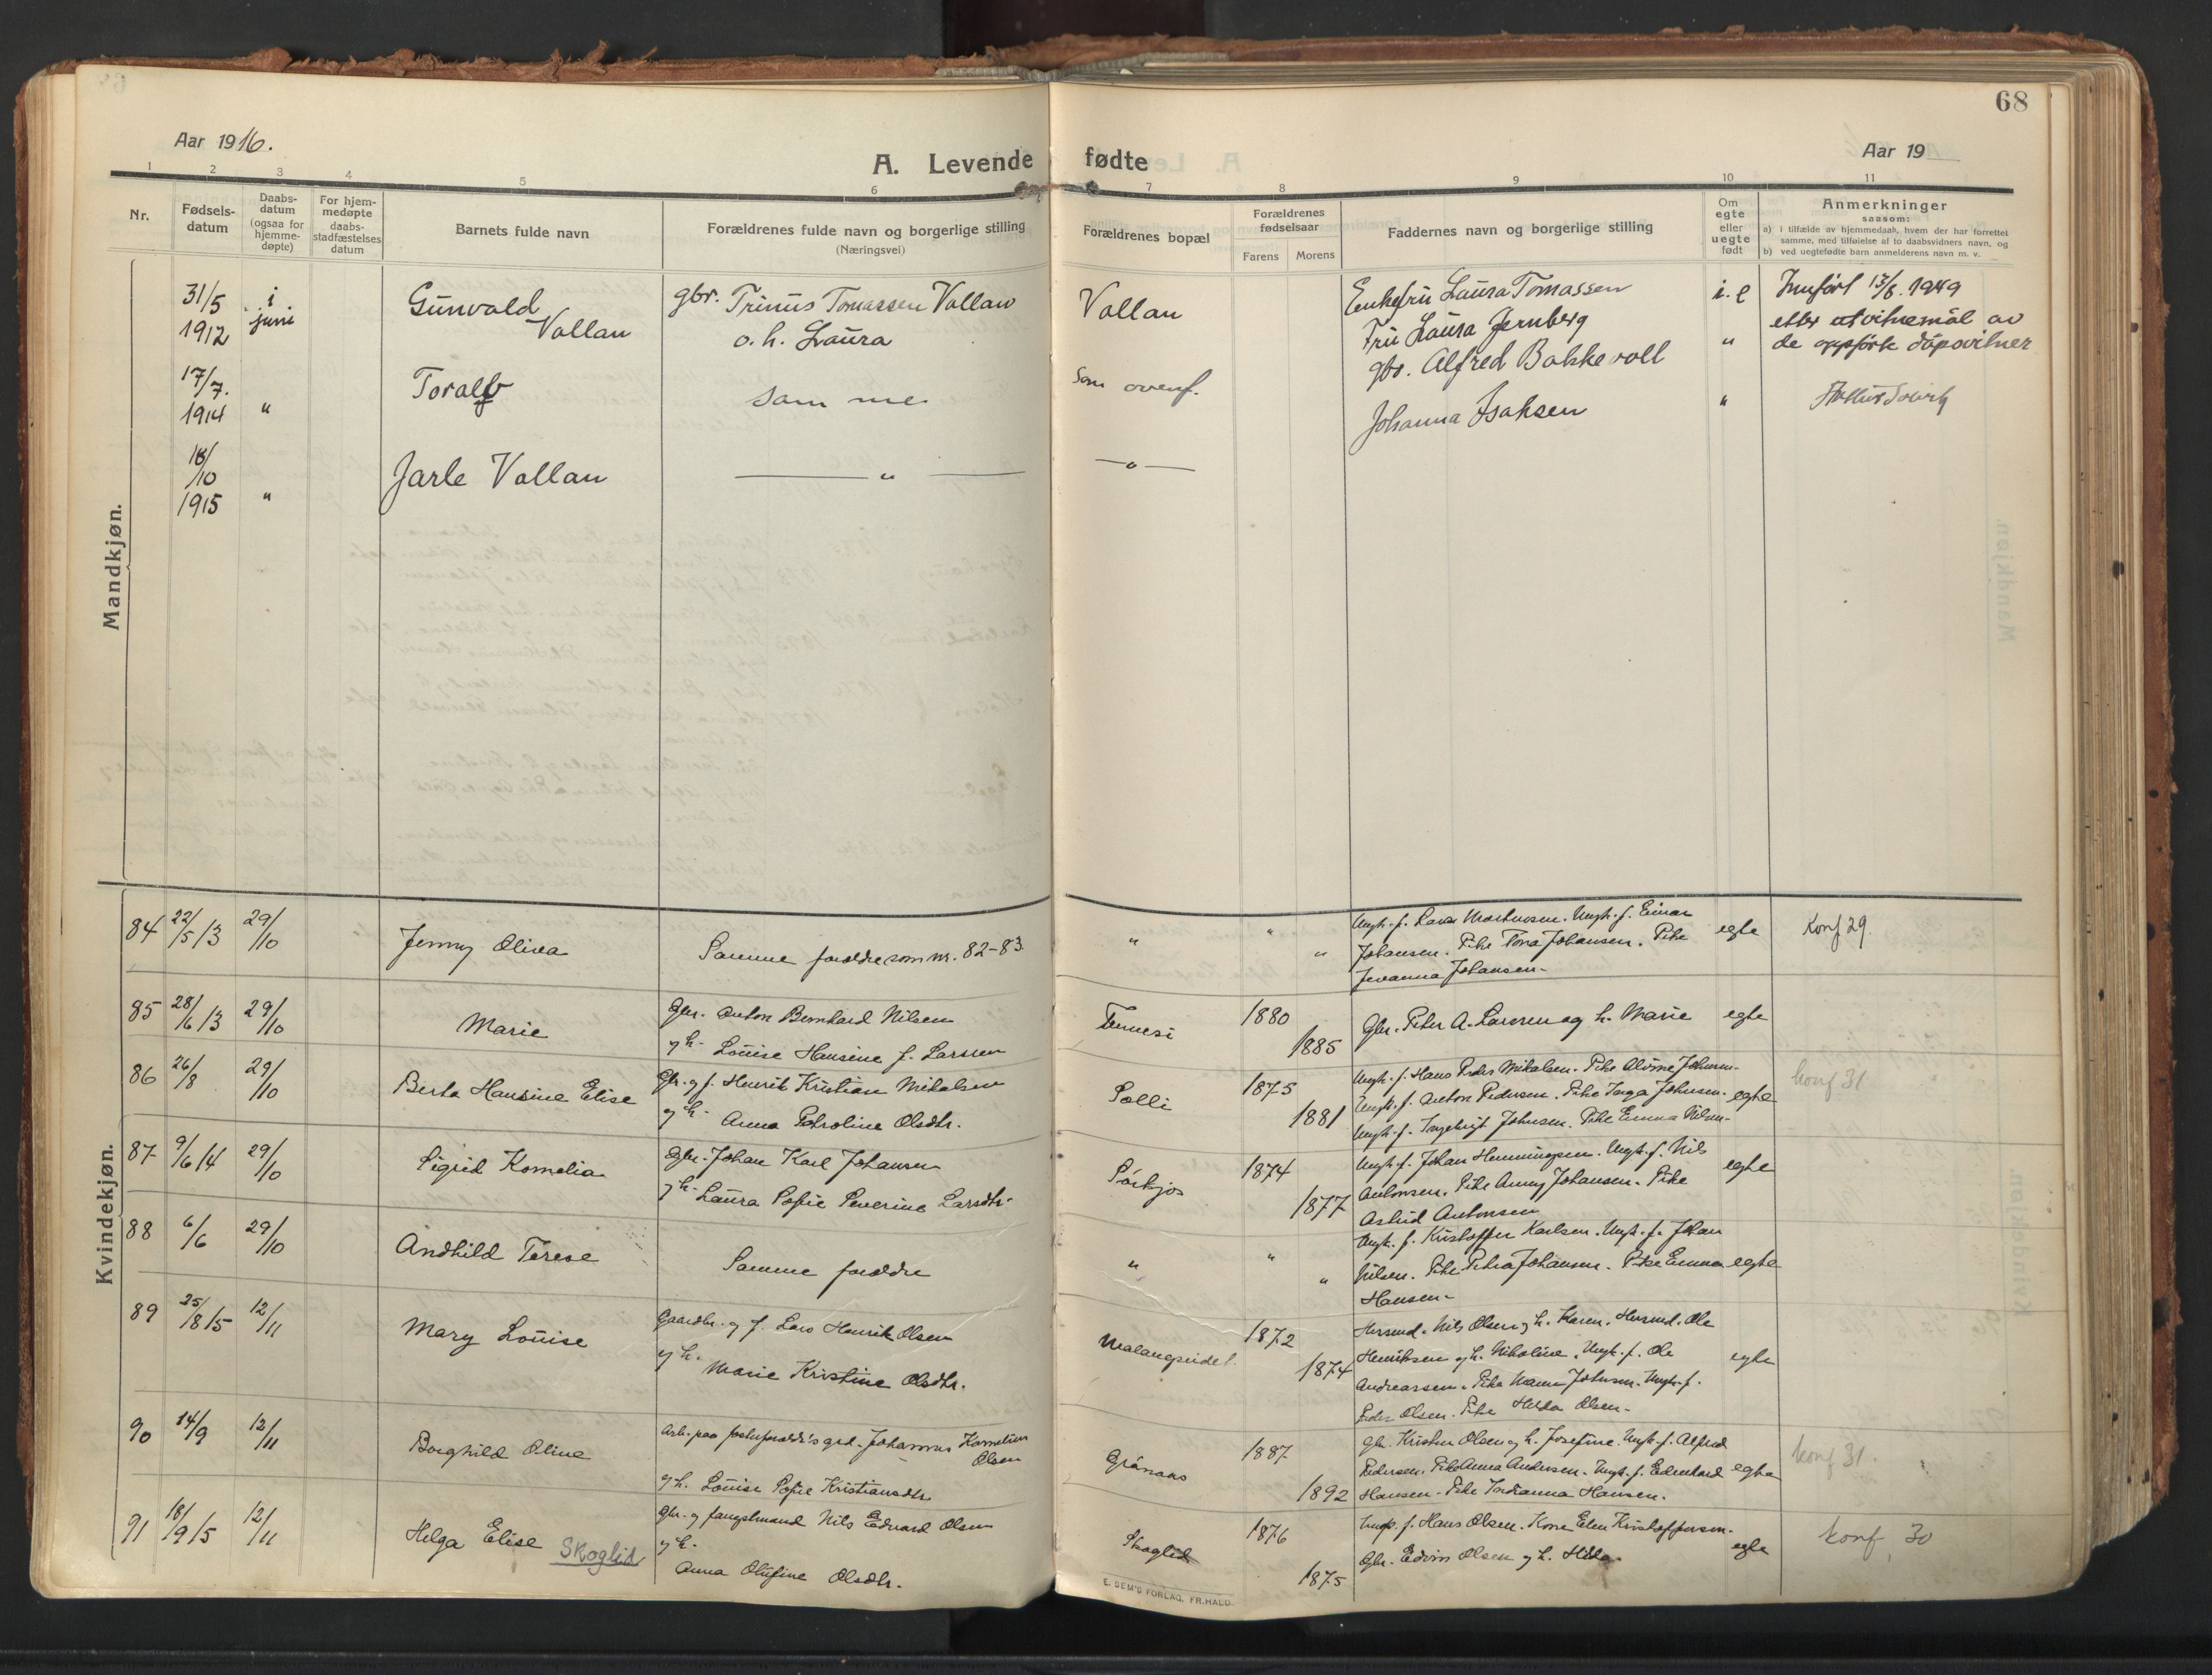 68
Aar 1916.
A. Levende fødte
Aar 19
1 2 3 4 5 6 7 8 9 10 11
Nr.
Fødsels-
datum
Daabs-
datum
(ogsaa for
hjemme-
døpte)
For hjem-
medøpte
daabs-
stadfæstelses
datum
Barnets fulde navn
Forældrenes fulde navn og borgerlige stilling
(Næringsvei)
Forældrenes bopæl
Forældrenes
fødselsaar
Farens Morens
Faddernes navn og borgerlige stilling
Om
egte
eller
uegte
født
Anmerkninger
saasom:
a) i tilfælde av hjemmedaab, hvem der har forrettet
samme, med tilføielse af to daabsvidners navn, og
b) ved uegtefødte barn anmelderens navn m. v.
Mandkjøn.
31/5
1912
i
juni
Gunvald
Vollan
gbr. Trinus Tomassen Vollan
o. h. Laura
Vollan
Enkefru Laura Tomassen
Fru Laura Jernberg
gbr. Alfred Bakkevoll
Johanna Isaksen
i. e
Innført 13/6. 1949
etter utvitnemål av
de oppførte dåpsvitner
17/7.
1914
"
Toralf
Som me
Som ovenf.
"
"
18/10
1915
"
Jarle Vollan
— " —
— " —
Kvindekjøn.
84 22/5 13 29/10
Jenny Oliva
Samme foreldre som nr. 82-83
" " "
Ungk. f. Lars Mortensen. Ungk. f. Einar
Johansen. Pike Tona Johansen. Pike
Jovanna Johansen.
egte
Konf 29
85 28/6 13 29/10
Marie
Gbr. Anton Bernhard Nilsen
og h. Louise Hansine f. Larssen
Tennesi
1880
1885
Gbr. Peter A. Larssen og h. Marie
egte
86 26/8 29/10
Berta Hansine Elise
Gbr. og f. Henrik Kristian Mikalsen
og h. Anna Petroline Olsdtr.
Solli
1875
1881
Ungk. f. Hans Peder Mikalsen. Pike Alvine Johnsen.
Ungk. f. Anton Pedersen. Pike Inga Johnsen.
Ungk. f. Ingebrigt Johnsen. Pike Emma Nilsen.
egte
konf 31
87 9/6 14 29/10
Sigrid Kornelia
Gbr. Johan Karl Johansen
og h. Laura Sofie Severine Larsdtr.
Sørkjos
1874
1877
Ungk. f. Johan Henningsen. Ungk. f. Nils
Antonsen. Pike Anny Johansen. Pike
Astrid Antonsen
egte
88 6/6 29/10
Andhild Terese
Samme foreldre
" " "
Ungk. f. Kristoffer Karlsen. Ungk. f. Johan
Nilsen. Pike Petra Johansen. Pike Emma
Hansen.
egte
89 25/8 15 12/11
Mary Louise
Gaardbr. og f. Lars Henrik Olsen
og h.
Marie Kristine Olsdtr.
Malangseidet.
1872
1874
Husmd. Nils Olsen og h. Karen. Husmd. Ole
Henriksen og h. Nikoline. Ungk. f. Ole
Andreassen. Pike Johnsen. Ungk. f.
Peder Olsen. Pike Helda Olsen.
egte
90 14/9 12/11
Borghild Oline
Arb. paa fosterforeldr's grd. Johannes Kornelius
Olsen
og h. Louise Sofie Kristiansdtr.
Grånaas
1887
1892
Gbr. Kristen Olsen og h. Josefine. Ungk. f. Alfred
Pedersen. Pike Anna Andersen. Ungk. f. Edenhard
Hansen. Pike Indianna Hansen.
egte
konf 31.
91 18/9 15 12/11
Helga Elise Skoglid
Gbr. og fangstmand Nils Edvard Olsen
og h.
Anna Olufine Olsdtr.
Skoglid
1876
1875
Ungk. f. Hans Olsen. Kone Elen Kristoffersen.
Gbr. Edvin Olsen og h. Hilda.
egte
konf 30
E. SEM'S FORLAG, FR.HALD